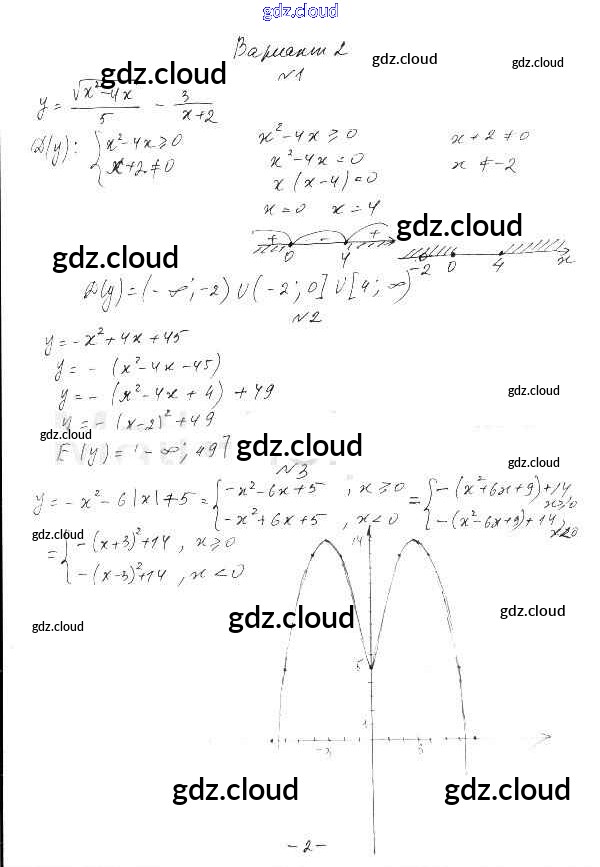 gdz.cloud
Вариант 2
gdz.cloud gdz.cloud gdz.cloud
№1
y = √x²-4x / 5 - 3 / x+2
D(y): { x²-4x ≥ 0 x²-4x ≥ 0 x+2 ≠ 0
x+2 ≠ 0 x²-4x = 0 x ≠ -2
x(x-4) = 0
x = 0 x = 4
gdz.cloud
+ - +
0 4 -2 0 4 x
gdz.cloud
D(y) = (-∞; -2) ∪ (-2; 0] ∪ [4; ∞)
№2
y = -x² + 4x + 45
y = -(x² - 4x - 45)
y = -(x² - 4x + 4) + 49
gdz.cloud
y = -(x-2)² + 49
gdz.cloud
E(y) = (-∞; 49]
gdz.cloud
№3
gdz.cloud
y = -x² - 6|x| + 5 = { -x² - 6x + 5, x ≥ 0 = { -(x²+6x+9)+14 x ≥ 0
-x² + 6x + 5, x < 0 -(x²-6x+9)+14, x<0
gdz.cloud
= { -(x+3)²+14, x ≥ 0
-(x-3)²+14, x < 0
14
gdz.cloud
gdz.cloud
gdz.cloud
5
1
-3
gdz.cloud gdz.cloud
- 2 -